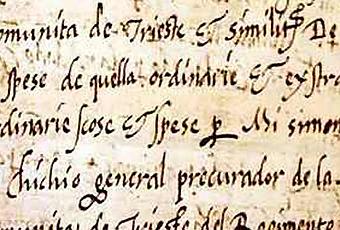 omunita de Trieste & similitr De
spese de quella ordinarie & extra
dinarie scose & spese p Mi simon
Chiuchio general procurador de la
munita de Trieste del Regimento